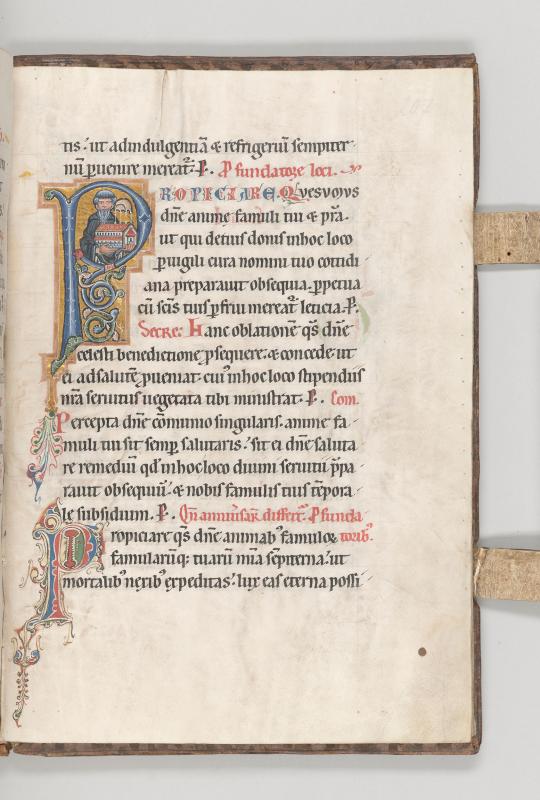 tis. ut ad indulgentiā & refrigeriū sempiter
nū ꝑuenire mereat᷑. P. P fundatore loci.
PROPICIARE. Qvesvoys
dn̄e anime famuli tui & p̄ra.
ut qui detuis donis inhoc loco
ꝑuigili cura nomini tuo cottidi
ana preparauit obsequia. ꝑpetua
cū sc̄is tuis ꝑfrui mereat᷑ leticia. P.
Secre. Hanc oblationē q̄s dn̄e
celesti benedictione ꝓsequere. & concede. ut
ei ad salutē ꝓueniat. cui᷒ inhoc loco stipendiis
nr̄a seruitus uegetata tibi ministrat. P. Com.
Percepta dn̄e cōmunio singularis. anime fa
muli tui sit semꝑ salutaris. sit ei dn̄e saluta
re remediū qd̓ inhoc loco diuini seruitii p̄pa
rauit obsequiū. & nobis famulis tuis tēpora
le subsidium. P. Qn̄ anniūsar̄. differt᷑. P funda
Propiciare q̄s dn̄e animab᷒ famuloꝝ toribꝰ.
famularūq; tuarū mīa sēpiterna. ut
mortalib᷒ nexib᷒ expeditas. lux eas eterna possi